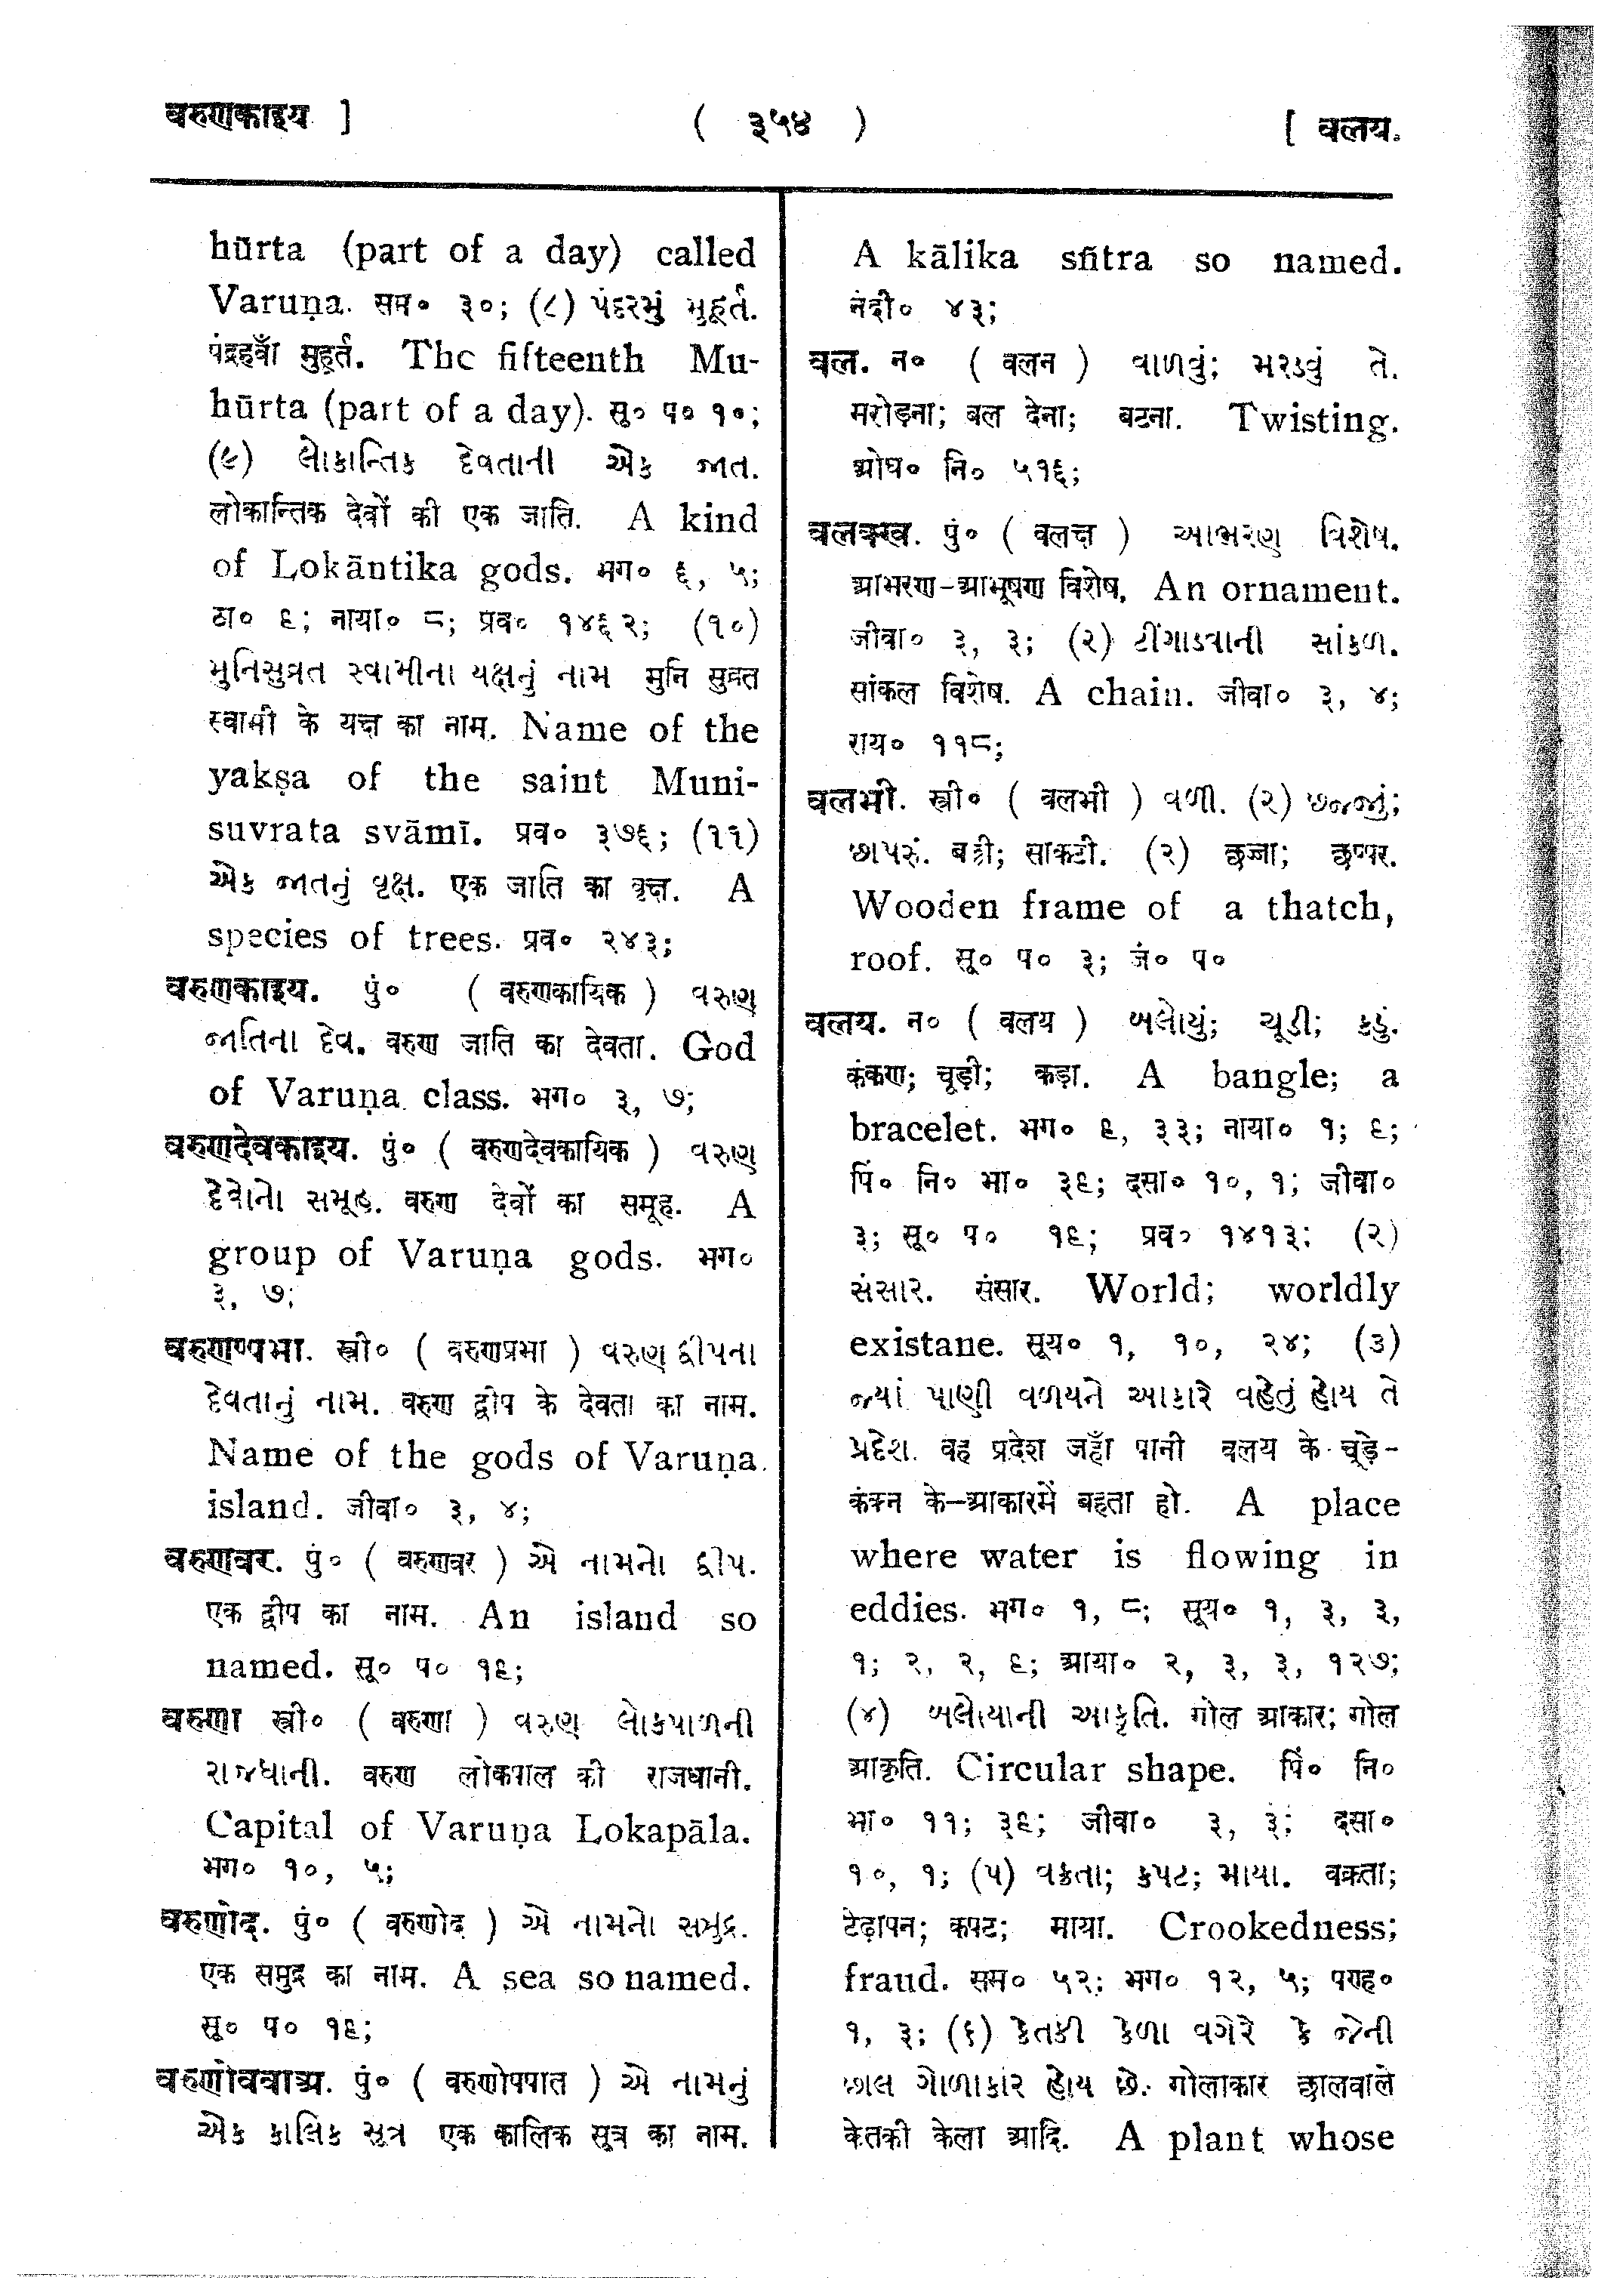 वरुणकाइय ] ( ३५४ ) [ वलय.
hūrta (part of a day) called
Varuṇa. सम० ३०; (૮) પંદરમું મુહૂર્ત.
पंद्रहवाँ मुहूर्त. The fifteenth Mu-
hūrta (part of a day). सू० प० १०;
(૯) લોકાન્તિક દેવતાની એક જાત.
लोकान्तिक देवों की एक जाति. A kind
of Lokāntika gods. भग० ६, ५;
ठा० ६; नाया० ८; प्रव० १४६२; (१०)
મુનિસુવ્રત સ્વામીના યક્ષનું નામ मुनि सुव्रत
स्वामी के यक्ष का नाम. Name of the
yakṣa of the saint Muni-
suvrata svāmī. प्रव० ३७६; (११)
એક જાતનું વૃક્ષ. एक जाति का वृक्ष. A
species of trees. प्रव० २४३;
वरुणकाइय. पुं० ( वरुणकायिक ) વરુણ
જાતિના દેવ. वरुण जाति का देवता. God
of Varuṇa class. भग० ३, ७;
वरुणदेवकाइय. पुं० ( वरुणदेवकायिक ) વરુણ
દેવોનો સમૂહ. वरुण देवों का समूह. A
group of Varuṇa gods. भग०
३, ७;
वरुणप्पभा. स्त्री० ( वरुणप्रभा ) વરુણ દ્વીપના
દેવતાનું નામ. वरुण द्वीप के देवता का नाम.
Name of the gods of Varuṇa
island. जीवा० ३, ४;
वरुणवर. पुं० ( वरुणवर ) એ નામનો દ્વીપ.
एक द्वीप का नाम. An island so
named. सू० प० १६;
वरुणा स्त्री० ( वरुणा ) વરુણ લોકપાળની
રાજધાની. वरुण लोकपाल की राजधानी.
Capital of Varuṇa Lokapāla.
भग० १०, ५;
वरुणोद. पुं० ( वरुणोद ) એ નામનો સમુદ્ર.
एक समुद्र का नाम. A sea so named.
सू० प० १६;
वरुणोववाअ. पुं० ( वरुणोपपात ) એ નામનું
એક કાલિક સૂત્ર एक कालिक सूत्र का नाम.
A kālika sūtra so named.
नंदी० ४३;
वल. न० ( वलन ) વાળવું; મરડવું તે.
मरोड़ना; बल देना; बटना. Twisting.
ओघ० नि० ५१६;
वलक्ख. पुं० ( वलक्ष ) આભરણ વિશેષ.
आभरण-आभूषण विशेष. An ornament.
जीवा० ३, ३; (२) ટીંગાડવાની સાંકળ.
सांकल विशेष. A chain. जीवा० ३, ४;
राय० ११८;
वलभी. स्त्री० ( वलभी ) વળી. (૨) છજ્જું;
છાપરું. बल्ली; साकटी. (२) छज्जा; छप्पर.
Wooden frame of a thatch,
roof. सू० प० ३; जं० प०
वलय. न० ( वलय ) બલોયું; ચૂડી; કડું.
कंकण; चूड़ी; कड़ा. A bangle; a
bracelet. भग० ६, ३३; नाया० १; ६;
पिं० नि० भा० ३६; दसा० १०, १; जीवा०
३; सू० प० १६; प्रव० १४१३; (२)
સંસાર. संसार. World; worldly
existane. सूय० १, १०, २४; (૩)
જ્યાં પાણી વળયને આકારે વહેતું હોય તે
પ્રદેશ. वह प्रदेश जहाँ पानी वलय के चूड़े-
कंकन के-आकारमें बहता हो. A place
where water is flowing in
eddies. भग० १, ८; सूय० १, ३, ३,
१; २, २, ६; आया० २, ३, ३, १२७;
(૪) બલોયાની આકૃતિ. गोल आकार; गोल
आकृति. Circular shape. पिं० नि०
भा० ११; ३६; जीवा० ३, ३; दसा०
१०, १; (૫) વક્રતા; કપટ; માયા. वक्रता;
टेढ़ापन; कपट; माया. Crookedness;
fraud. सम० ५२; भग० १२, ५; पण्ह०
१, ३; (૬) કેતકી કેળા વગેરે કે જેની
છાલ ગોળાકાર હોય છે. गोलाकार छालवाले
केतकी केला आदि. A plant whose